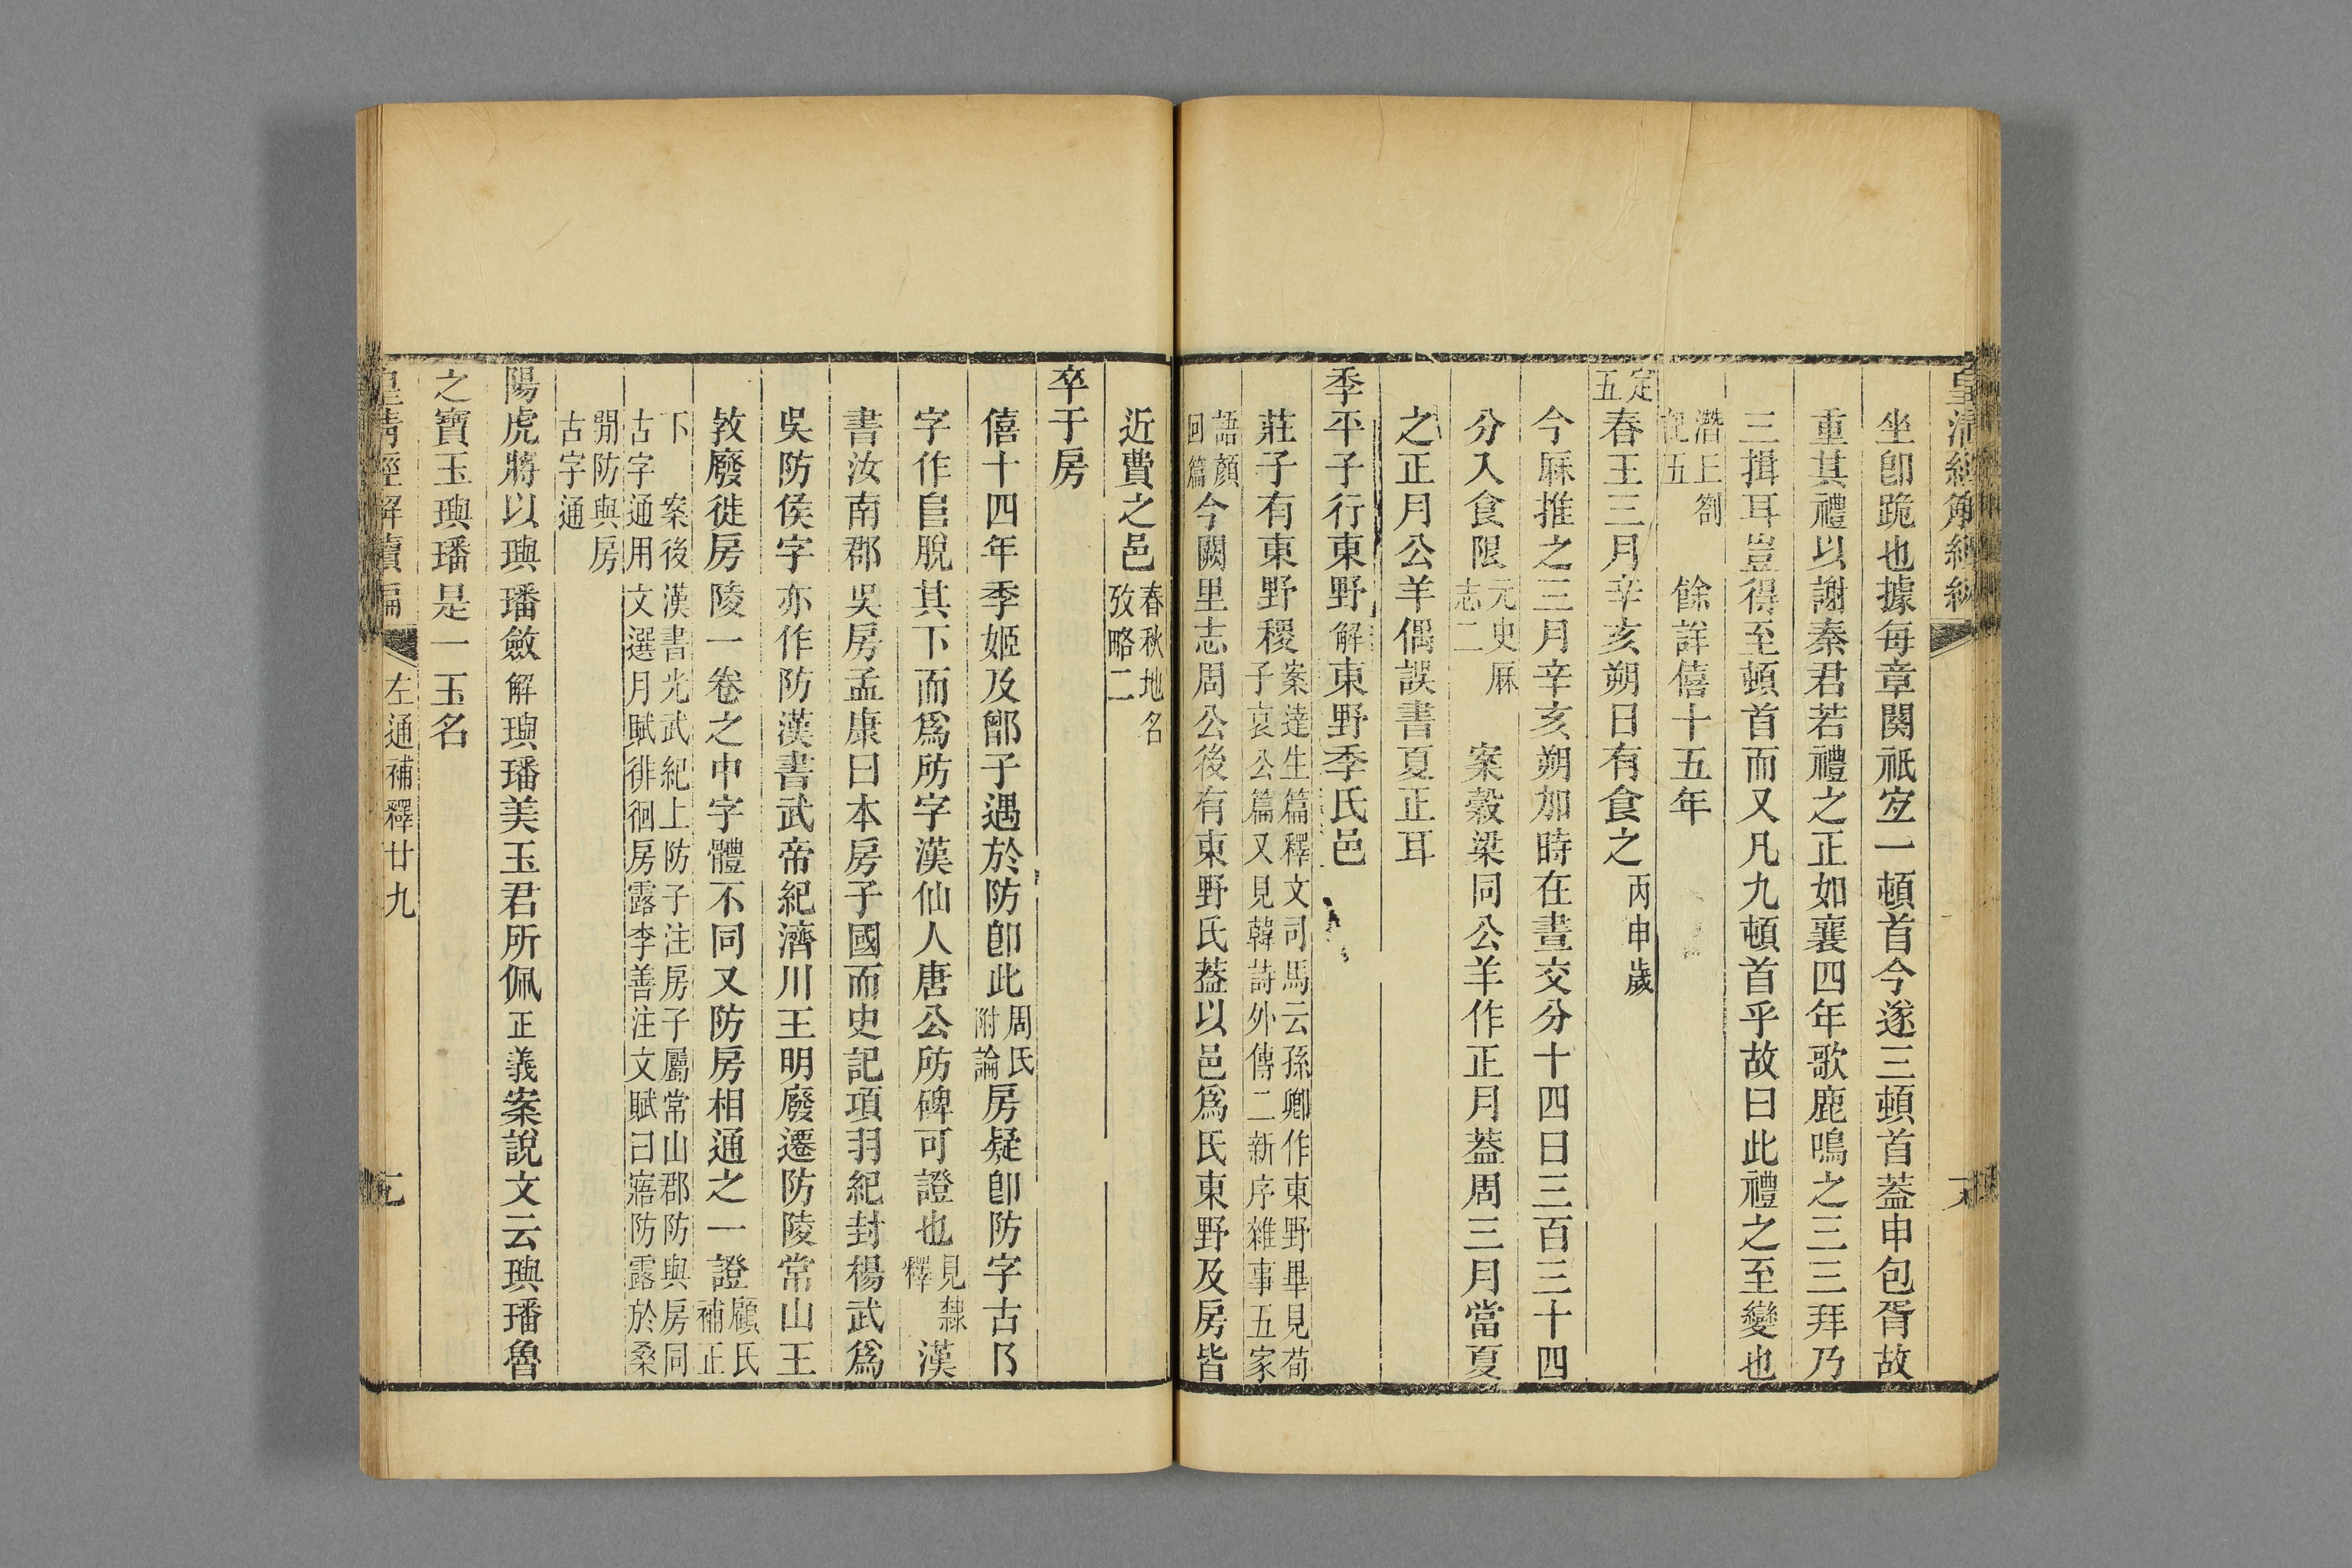 坐卽跪也據每章闋祇宐一頓首今遂三頓首葢申包胥故
重其禮以謝秦君若禮之正如襄四年歌鹿鳴之三三拜乃
三揖耳豈得至頓首而又凡九頓首乎故曰此禮之至變也
潛邱劄記五 餘詳僖十五年
定五春王三月辛亥朔日有食之 丙申歲
今厤推之三月辛亥朔加時在晝交分十四日三百三十四
分入食限元史厤志二 案穀梁同公羊作正月葢周三月當夏
之正月公羊偶誤書夏正耳
季平子行東野解東野季氏邑
莊子有東野稷案達生篇釋文司馬云孫卿作東野畢見荀子哀公篇又見韓詩外傳二新序雜事五家
語顏回篇今闕里志周公後有東野氏葢以邑爲氏東野及房皆
近費之邑春秋地名攷略二
卒于房
僖十四年季姬及鄫子遇於防卽此周氏附論房疑卽防字古阝
字作𨸏脫其下而爲阞字漢仙人唐公阞碑可證也見隸釋漢
書汝南郡吳房孟康曰本房子國而史記項羽紀封楊武爲
吳防侯字亦作防漢書武帝紀濟川王明廢遷防陵常山王
敦廢徙房陵一卷之中字體不同又防房相通之一證顧氏補正
下 案後漢書光武紀上防子注房子屬常山郡防與房同古字通用文選月賦徘徊房露李善注文賦曰寤防露於桑
閒防與房古字通
陽虎將以璵璠斂解璵璠美玉君所佩正義案說文云璵璠魯
之寶玉璵璠是一玉名
皇清經解續編 左通補釋廿九